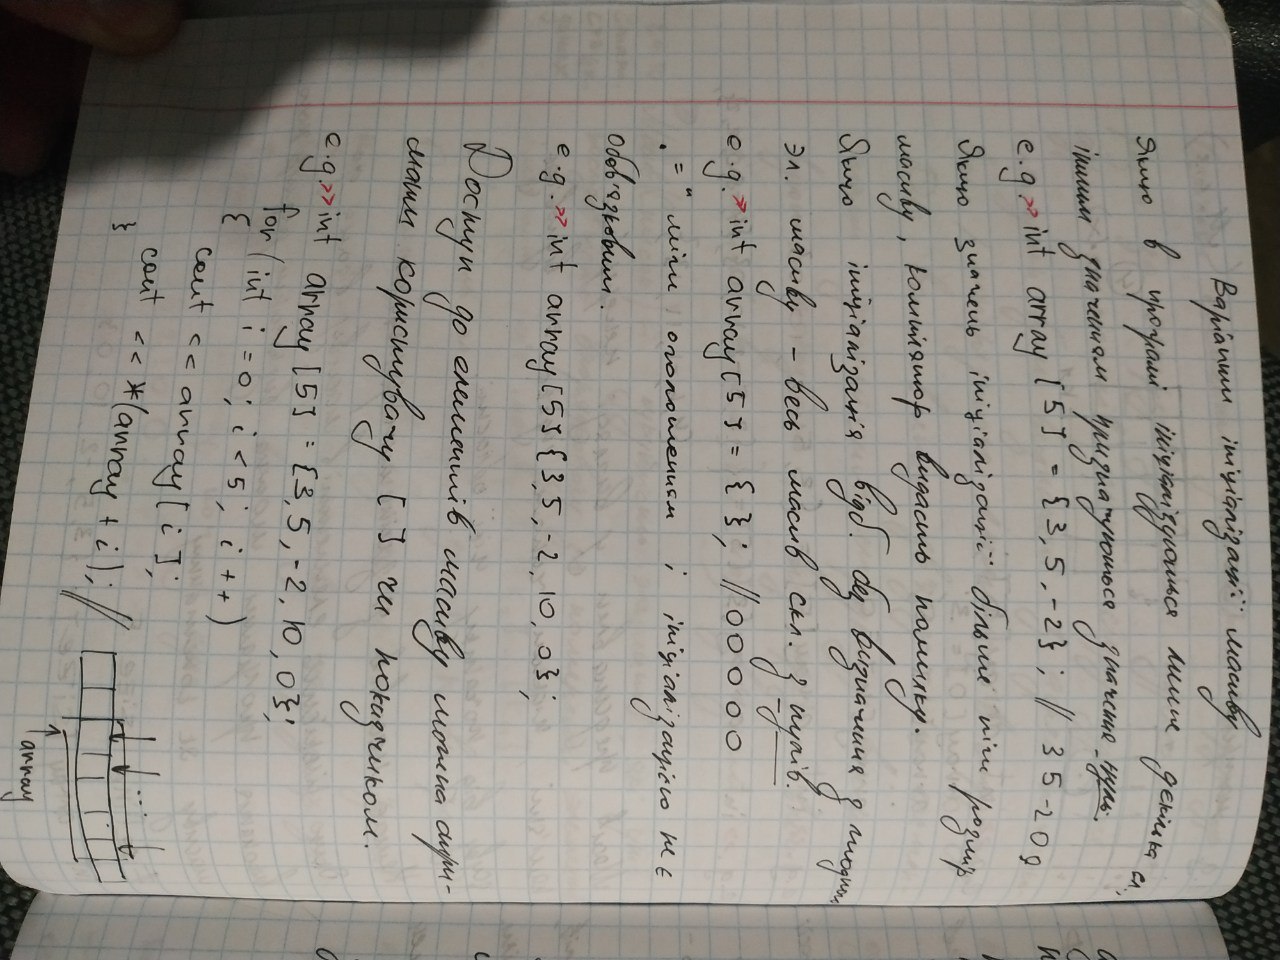 Варіанти ініціалізації масиву
Якщо в програмі ініціалізуються лише декілька ел,
іншим значенням призначуються значення нуль.
e.g.>> int array [5] = {3, 5, -2}; // 3 5 -2 0 0
Якщо значень ініціалізації більше ніж розмір
масиву, компілятор видасть помилку.
Якщо ініціалізація відб. без визначення жодним
эл. масиву – весь масив скл. з нулів.
e.g.>> int array[5] = { }; // 0 0 0 0 0
"=" між оголошенням і ініціалізацією не є
обов'язковим.
e.g.>> int array[5]{3,5,-2,10,0};
Доступ до елементів масиву можна отри-
мати користувачу [ ] чи покажчиком.
e.g.>> int array [5] = {3, 5, -2, 10, 0};
for (int i = 0; i < 5; i++)
{
cout << array [i];
cout << *(array + i); //
}
....
array